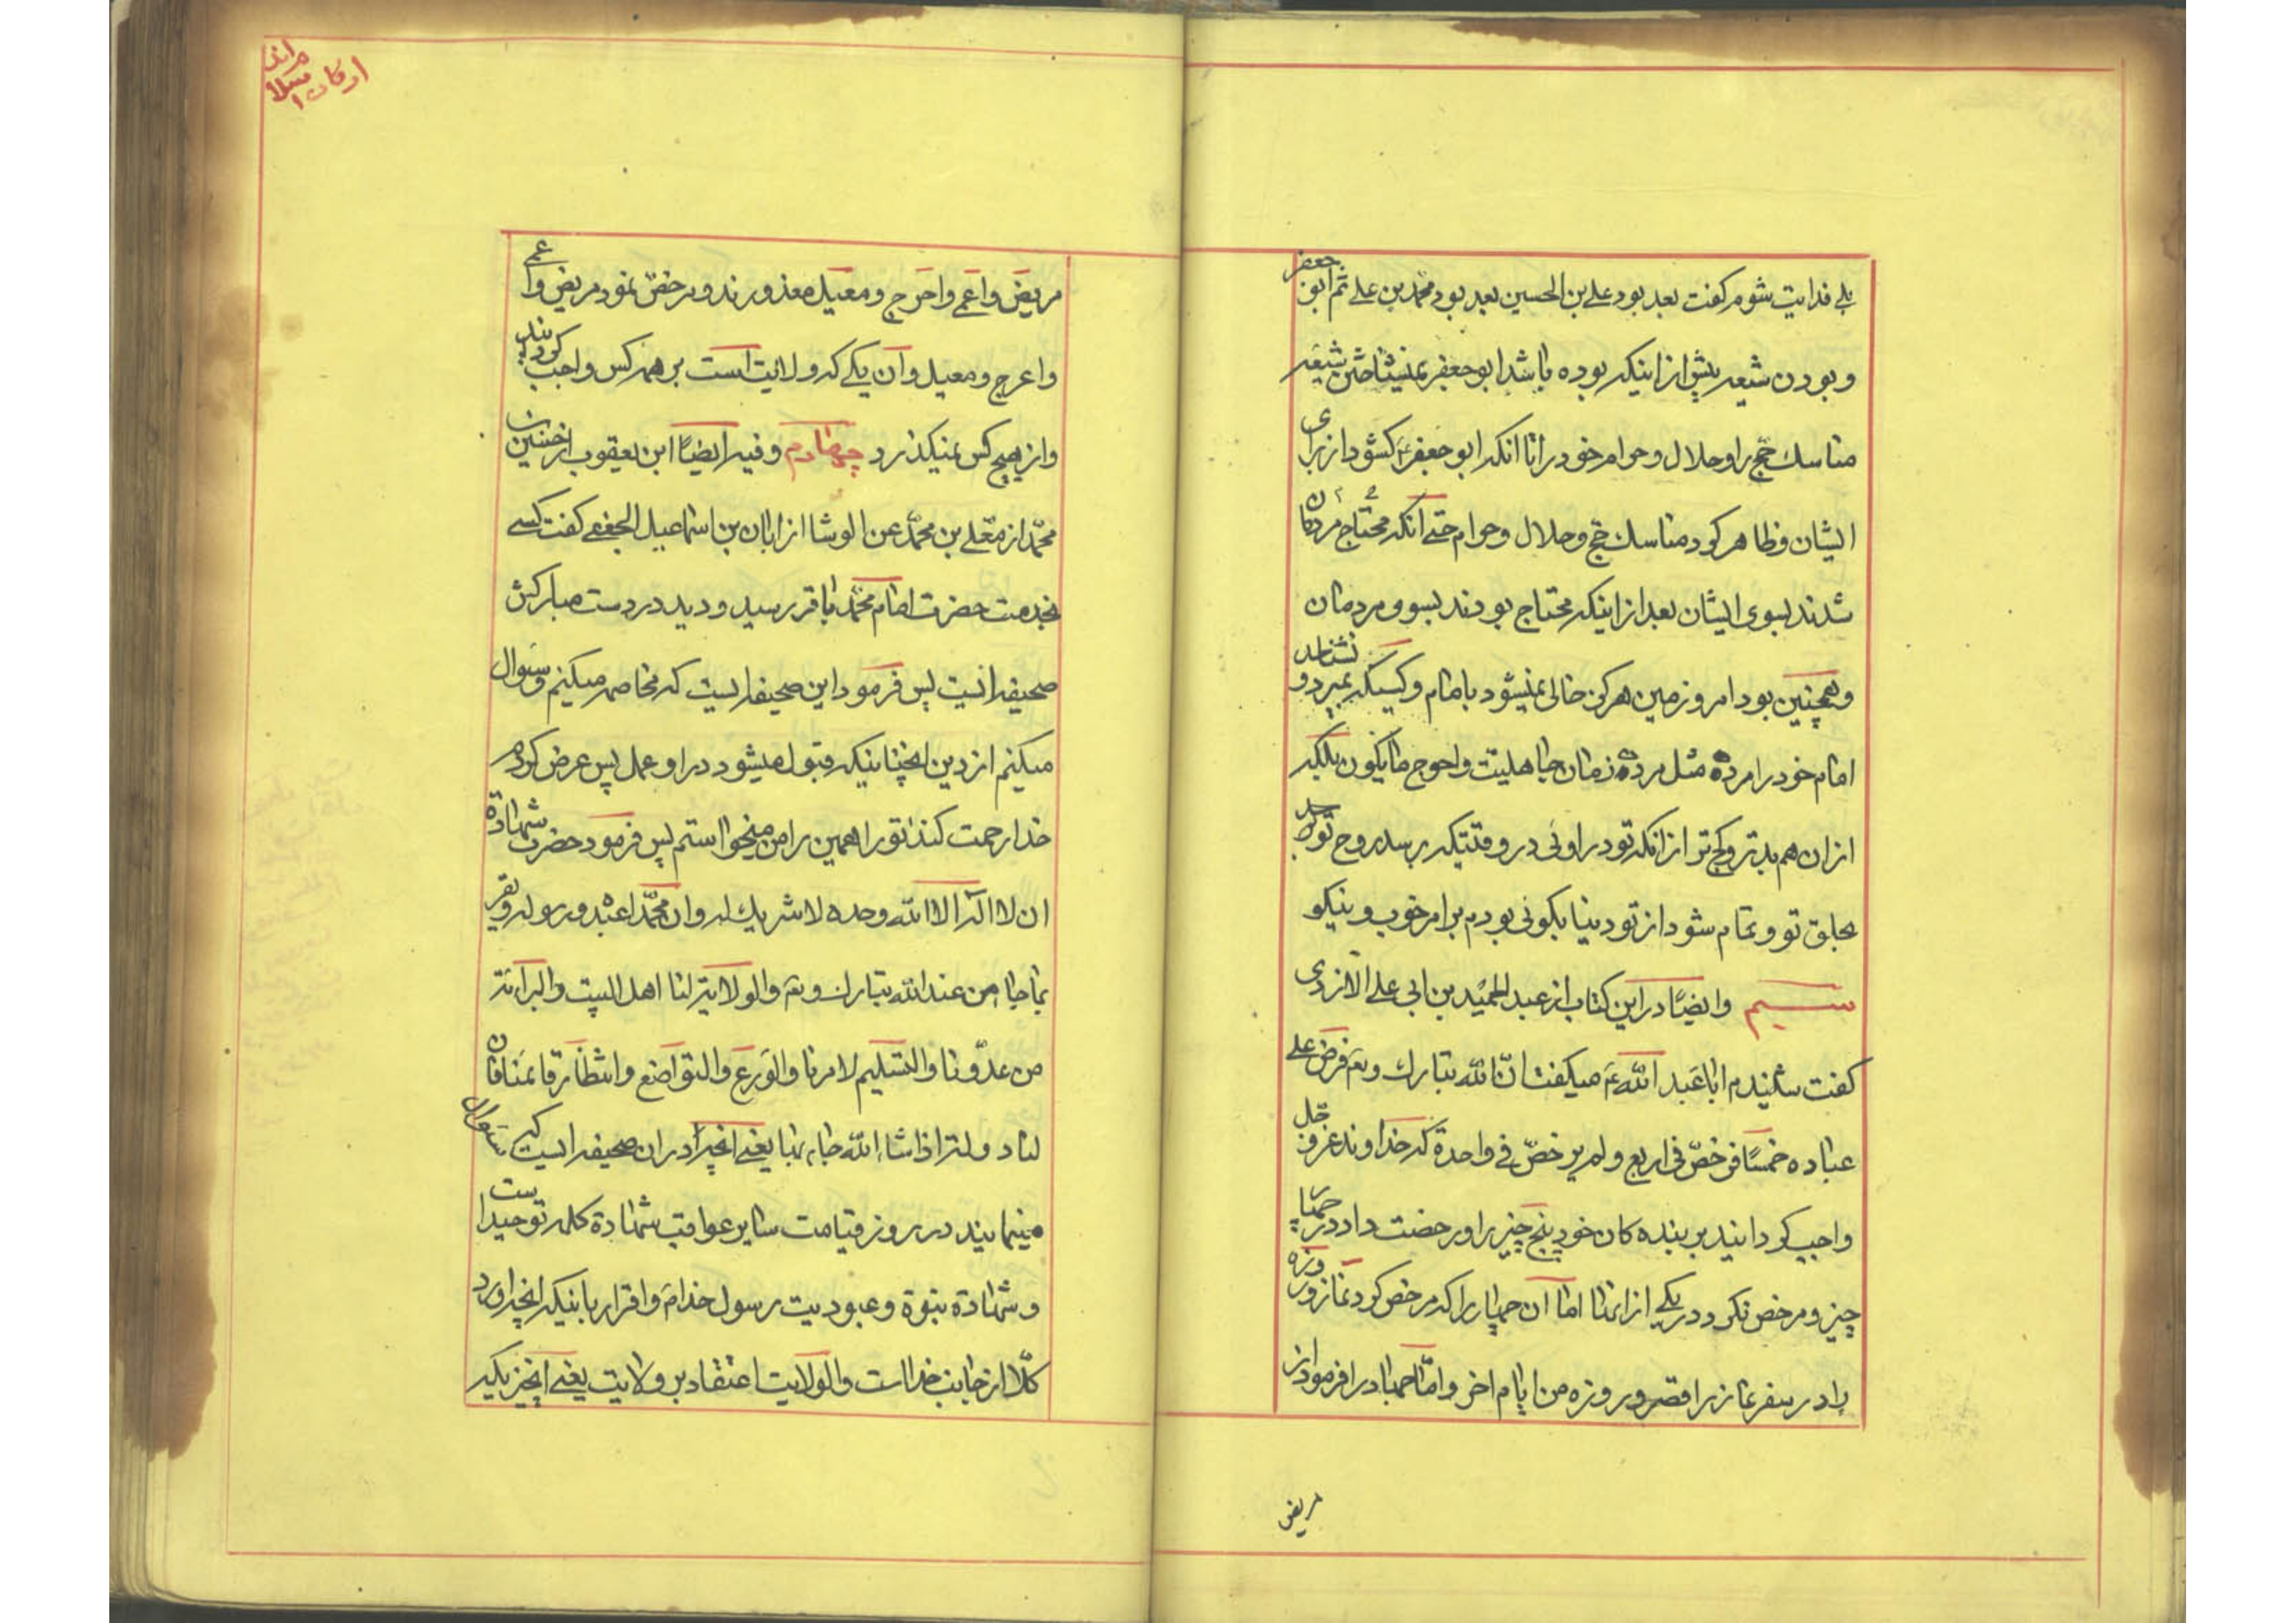 بلی فدایت شوم گفت بعد بود علی بن الحسین بعد بود محمد بن علی ثم ابو جعفر
و بودن شیعه پیش از اینکه بوده باشد ابو جعفر نمیشناختن شیعه
مناسك حج را و حلال و حرام خود را تا انکه ابو جعفر کشود از برای
ایشان و ظاهر کرد مناسك حج و حلال و حرام حتی انکه محتاج مردمان
شدند بسوی ایشان بعد از اینکه محتاج بودند بسوی مردمان
و همچنین بود امر و زمین هرکز خالی نمیشود با امام و کسیکه بمیرد و نشناسد
امام خود را مرده مثل مرده زمان جاهلیت و احوج ما یکون بلکیه
ازان هم بدتر و کج تر از انکه تو در اوئی در وقتیکه برسد روح تو
بحلق تو و تمام شود از تو دنیا بکوئی بودم بر امر خوب و نیکو
سیم وایضًا در این کتاب از عبد الحمید بن ابی علی الازدی
کفت شنیدم ابا عبد الله ع میکفت ان الله تبارك و تع فرض علی
عباده خمسًا فرخص فی اربع و لم یرخص فی واحدة که خداوند عز و جل
واجب کردانید بر بنده کان خود پنج چیز را و رخصت داد در چهار
چیز و مرخص نکرد در یکی از انها اما آن چهار را که مرخص کرد نماز و روزه
را در سفر نماز را قصر و روزه من ایام اخر و امّا جهاد را فرمود از
مریض
ارکان اسلام
مریض و اعمی و اعرج و معیل معذورند و مرخص نمود مریض و اعمی
و اعرج و معیل و آن یکی که ولایت است بر همه کس واجب کردانید
و از هیچ کس نمیکذرد چهارم و فیه ایضًا ابن یعقوب از حسین بن
محمّد از معّلی بن محمّد عن الوشا از ابان بن اسماعیل الجعفی کفت کسی
بخدمت حضرت امام محمّد باقر رسید و دید در دست مبارکش
صحیفه ایست پس فرمود این صحیفه ایست که مخاصمه میکنم و سئوال
میکنم از دین انچنانیکه قبول میشود در او عمل پس عرض کردم
خدا رحمت کند تو را همین را من میخواستم پس فرمود حضرت شهادة
ان لا اله الا الله وحده لا شریك له و ان محمّدا عبده و رسوله و یقر
بما جاء من عند الله تبارك و تع والولایة لنا اهل البیت والبرائة
من عدّونا والتسلیم لامرنا والورع والتواضع وانتظار قائمنا فان
لنا دولة اذا شاء الله جاء بها یعنی انچه در ان صحیفه ایست که
مینمایند در روز قیامت سایر عواقب شهادة کلمه توحید است
و شهادة بنبوة و عبودیت رسول خدا م و اقرار باینکه انچه اورد
کلّا از جانب خدا است والولایت اعتقاد بر ولایت یعنی